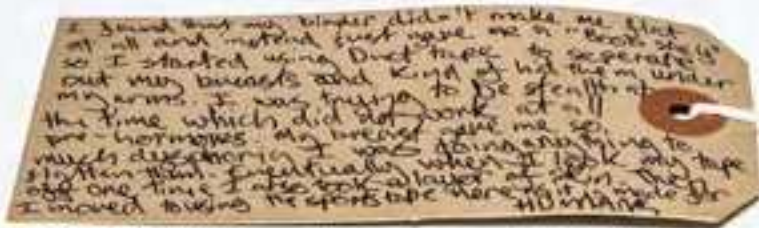 I found that my binder didn't make me flat
at all and instead just gave me a "Boob shelf"
so I started using Duct tape to seperate
out my breasts and kind of hid them under
my arms. I was trying to be stealth at
the time which did not work at all
pre-hormones my breast gave me so
much dysphoria I was doing anything to
flatten them. Eventually when I took my tape
off one time I also took a layer of skin. Then
I moved to using the sports tape there is it made for
HUMANS